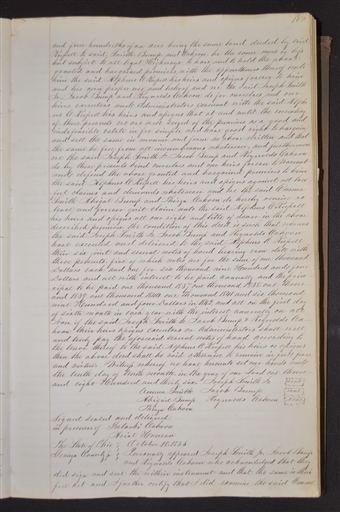 and four hundredths of an acre being the same land deeded by said
Ripset to said Smith, Jump and Osborn be the same more or less
but subject to all legal Highways to have and to hold the above
granted and bargained premises with the appurtenances thereof unto
him the said Alpheus C Ripset his heirs and assigns forever to him
and his own proper use and behoof and we the said Joseph Smith
Jr Jacob Jump and Reynolds Osborn do for ourselves and our
heirs executors and Administrators covenant with the said Alph
eus C Ripset his heirs and assigns that at and until the ensealing
of these presents we are well seized of the premises as a good and
indefeasible estate in fee simple and have good right to bargain
and sell the same in manner and form as above written and that
the same be free from all incumbrances whatsoever and furthermore
we the said Joseph Smith Jr Jacob Jump and Reynolds Osborn
do by these presents bind ourselves and our heirs forever to warrant
and defend the above granted and bargained premises to him
the said Alpheus C Ripset his heirs and assigns against all law
ful claims and demands whatsoever and we the said Emma
Smith Abigail Jump and Osborn do hereby remise re
lease and forever quit claim unto the said Alpheus C Ripset
his heirs and assigns all our right and title of dower in the above
described premises the condition of this deed is such that whereas
the said Joseph Smith Jr Jacob Jump and Reynolds Osborn
have executed and delivered to the said Alpheus C Ripset
their six joint and several notes of hand bearing even date with
these presents five of which notes are for the sum of one thousand
Dollars each and one for six thousand nine Hundred and four
Dollars and all with interest to be paid annually and the prin
cipal to be paid one thousand 1837 one thousand 1838 one thous
and 1839 one thousand 1840 one thousand 1841 and six thousand
nine Hundred and four Dollars in 1842 and all on the first day
of month in each year with the interest annually on all
Now if the said Joseph Smith Jr Jacob Jump & Reynolds Os
born their heirs assigns executors or Administrators shall well
and truly pay the aforesaid several notes of hand according to
the tenor thereof to the said Alpheus C Ripset his heirs or assigns
then the above deed shall be void otherwise to remain in full force
and virtue In Witness whereof we have hereunto set our hands and seals
the tenth day of month in the year of our Lord one thous
and eight Hundred and thirty six Joseph Smith Jr
Emma Smith Jacob Jump
Abigail Jump Reynolds Osborn
Osborn
Signed sealed and delivered
in presence of Osborn
The State of Ohio October 10 1836
Geauga County Personally appeared Joseph Smith Jr Jacob Jump
and Reynolds Osborn who acknowledged that they
did sign and seal the within instrument and that the same is their
free act and I further certify that I did examine the said Emma